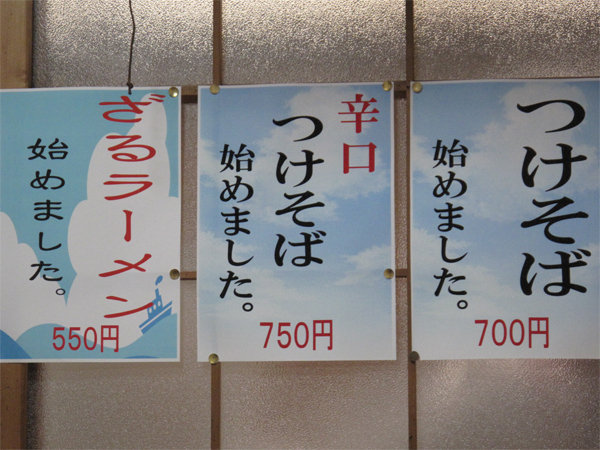 つけそば
始めました。
700円
辛口
つけそば
始めました。
750円
ざるラーメン
始めました。
550円